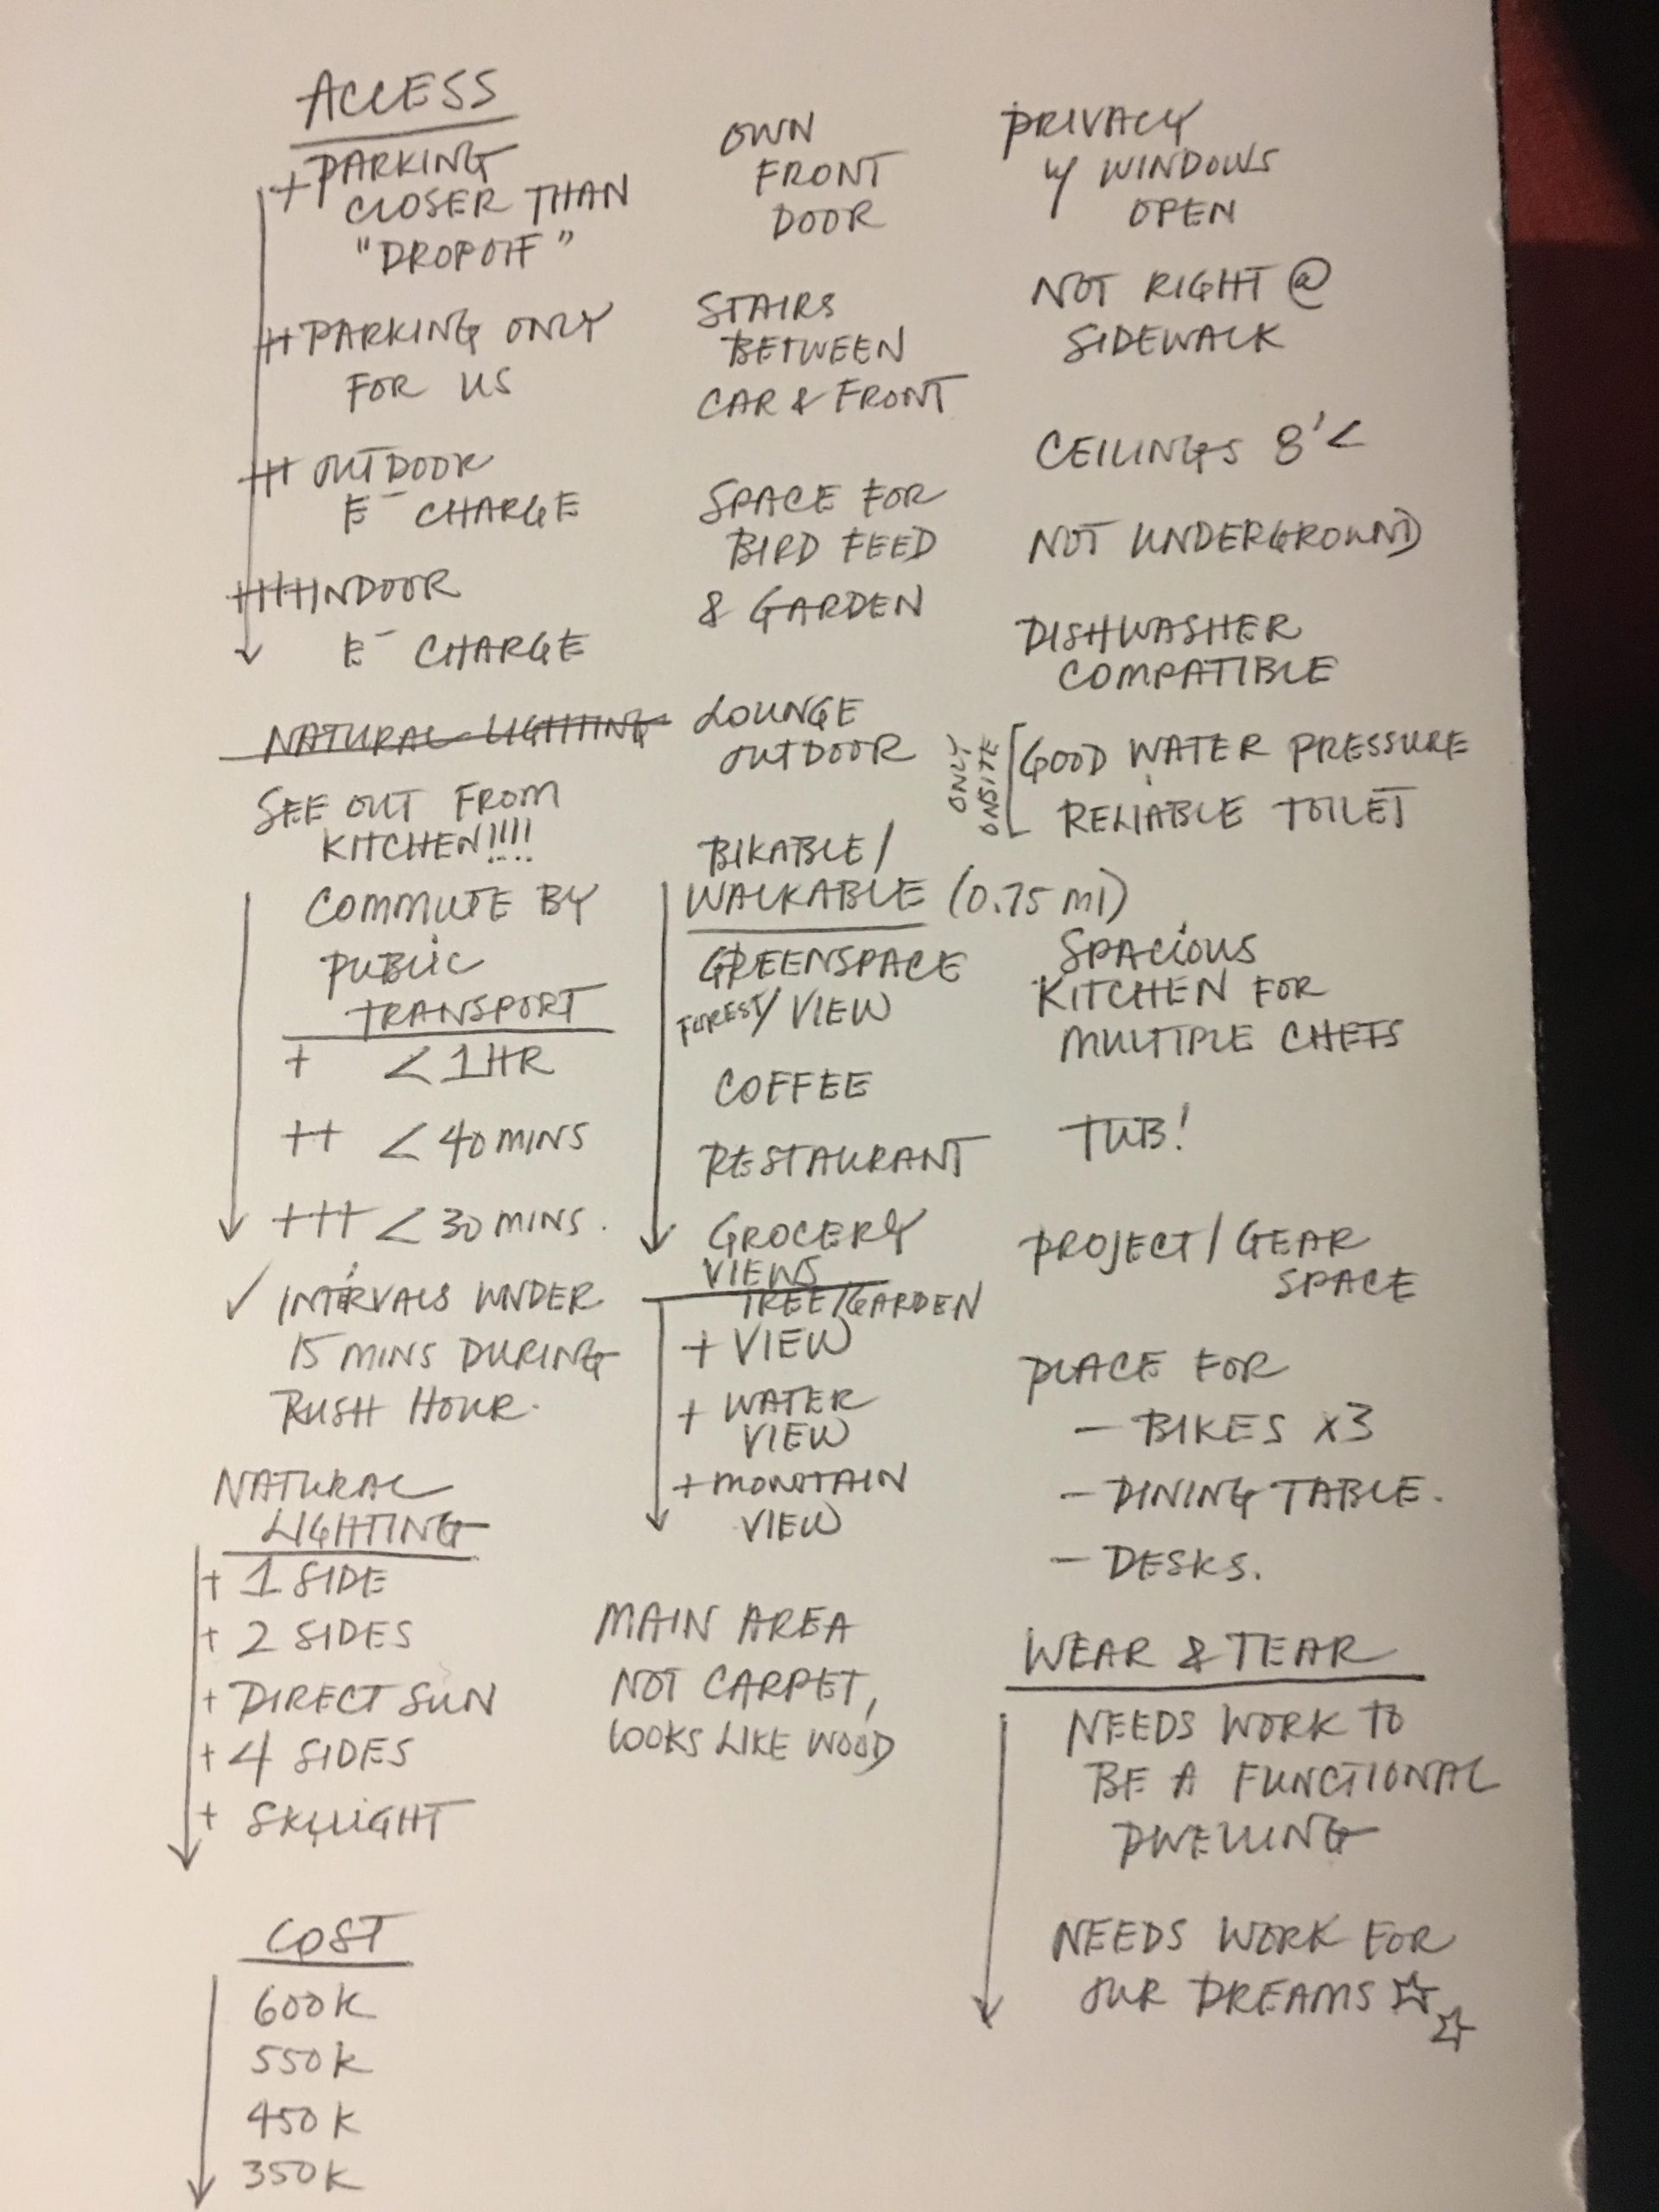 ACCESS
+ PARKING
CLOSER THAN
"DROPOFF"
++ PARKING ONLY
FOR US
+++ OUTDOOR
E⁻ CHARGE
++++ INDOOR
E⁻ CHARGE
NATURAL LIGHTING
SEE OUT FROM
KITCHEN!!!!
COMMUTE BY
PUBLIC
TRANSPORT
+ < 1 HR
++ < 40 MINS
+++ < 30 MINS.
✓ INTERVALS UNDER
15 MINS DURING
RUSH HOUR.
NATURAL
LIGHTING
+ 1 SIDE
+ 2 SIDES
+ DIRECT SUN
+ 4 SIDES
+ SKYLIGHT
COST
600K
550K
450K
350K
OWN
FRONT
DOOR
STAIRS
BETWEEN
CAR & FRONT
SPACE FOR
BIRD FEED
& GARDEN
LOUNGE
OUTDOOR
BIKABLE/
WALKABLE (0.75 MI)
GREENSPACE
FOREST/VIEW
COFFEE
RESTAURANT
GROCERY
VIEWS
TREE/GARDEN
+ VIEW
+ WATER
VIEW
+ MOUNTAIN
VIEW
MAIN AREA
NOT CARPET,
LOOKS LIKE WOOD
PRIVACY
W/ WINDOWS
OPEN
NOT RIGHT @
SIDEWALK
CEILINGS 8'<
NOT UNDERGROUND
DISHWASHER
COMPATIBLE
ONLY
ONSITE
GOOD WATER PRESSURE
RELIABLE TOILET
SPACIOUS
KITCHEN FOR
MULTIPLE CHEFS
TUB!
PROJECT/GEAR
SPACE
PLACE FOR
- BIKES x3
- DINING TABLE.
- DESKS.
WEAR & TEAR
NEEDS WORK TO
BE A FUNCTIONAL
DWELLING
NEEDS WORK FOR
OUR DREAMS ☆☆